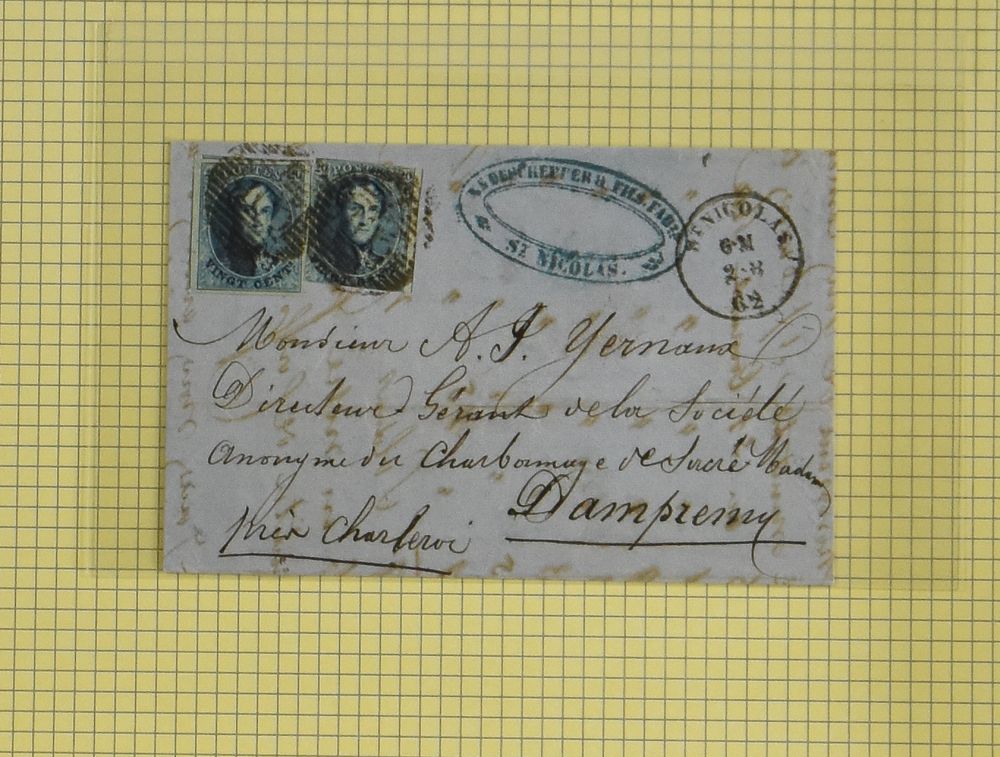 POSTES 20
VINGT CENT.
20 POSTES 20
& FILS. FABR
ST NICOLAS.
ST NICOLAS
6·M
2·8
62
Monsieur A. J. Yernaux
Directeur Gérant de la Société
Anonyme du Charbonnage de Sacré Madame
Dampremy
près Charleroi